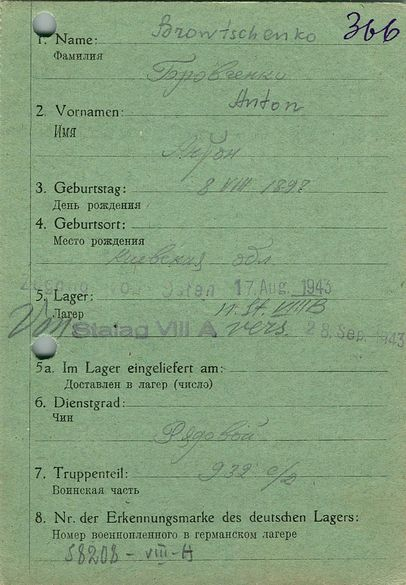 366
1. Name: Browtschenko
Фамилия
Бровченко
2. Vornamen: Anton
Имя
Антон
3. Geburtstag: 8 VIII 1898
День рождения
4. Geburtsort:
Место рождения
Киевская обл
Zugang von Osten 17. Aug. 1943
5. Lager: n. St. VIII B
Лагер
Von Stalag VIII A vers. 28. Sep. 1943
5a. Im Lager eingeliefert am:
Доставлен в лагер (число)
6. Dienstgrad:
Чин
Рядовой
7. Truppenteil: 932 с/п
Воинская часть
8. Nr. der Erkennungsmarke des deutschen Lagers:
Номер военнопленного в германском лагере
58208 - VIII - A